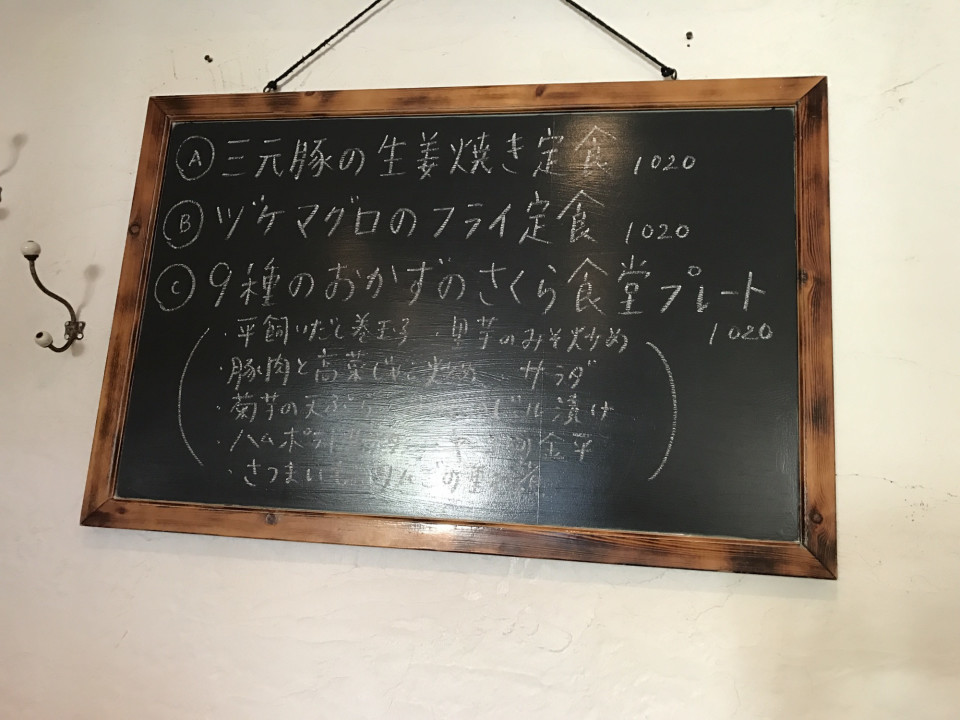 Ⓐ 三元豚の生姜焼き定食 1020
Ⓑ ヅケマグロのフライ定食 1020
Ⓒ 9種のおかずのさくら食堂プレート
1020
・平飼いだし巻玉子 ・里芋のみそ炒め
・豚肉と高菜じゃこ炒め ・サラダ
・菊芋の天ぷら ビール漬け
・ハムポテト の金平
・さつまいも りんごの重ね煮